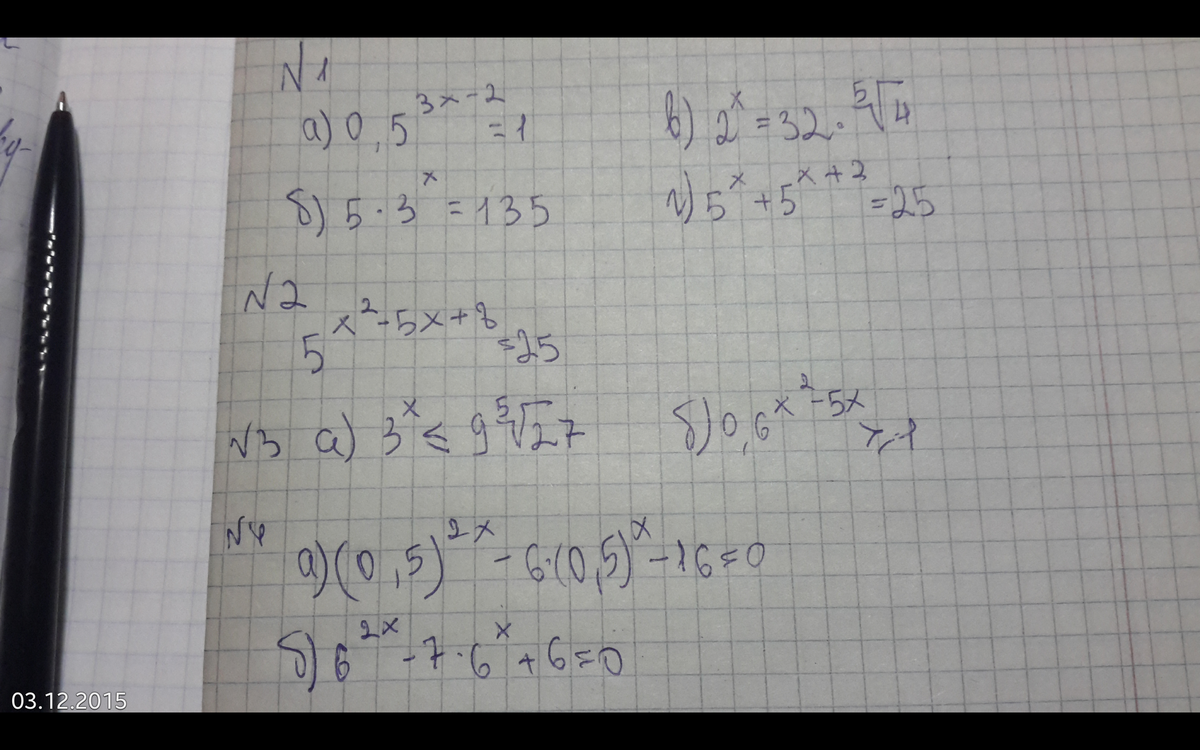 N1
а) 0,5^(3x-2) = 1
в) 2^x = 32 · ⁵√4
б) 5 · 3^x = 135
г) 5^x + 5^(x+2) = 25
N2
5^(x²-5x+8) = 25
N3 а) 3^x ≤ 9 ⁵√27
б) 0,6^(x²-5x) ≥ 1
N4
а) (0,5)^(2x) - 6·(0,5)^x - 16 = 0
б) 6^(2x) - 7·6^x + 6 = 0
03.12.2015